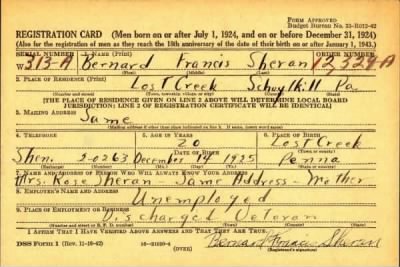 FORM APPROVED
Budget Bureau No. 33-R012-42
REGISTRATION CARD (Men born on or after July 1, 1924, and on or before December 31, 1924)
(Also for the registration of men as they reach the 18th anniversary of the date of their birth on or after January 1, 1943.)
SERIAL NUMBER 1. NAME (Print) ORDER NUMBER
W 313-A Bernard Francis Sheran 12,329A
(First) (Middle) (Last)
2. PLACE OF RESIDENCE (Print)
Lost Creek Schuylkill Pa
(Number and street) (Town, township, village or city) (County) (State)
[THE PLACE OF RESIDENCE GIVEN ON LINE 2 ABOVE WILL DETERMINE LOCAL BOARD
JURISDICTION; LINE 2 OF REGISTRATION CERTIFICATE WILL BE IDENTICAL]
3. MAILING ADDRESS
Same
[Mailing address if other than place indicated on line 2. If same, insert word same]
4. TELEPHONE 5. AGE IN YEARS 6. PLACE OF BIRTH
20 Lost Creek
DATE OF BIRTH
Shen. 2-0263 December 14 1925 Penna
7. NAME AND ADDRESS OF PERSON WHO WILL ALWAYS KNOW YOUR ADDRESS
Mrs. Rose Sheran Same Address - Mother
8. EMPLOYER'S NAME AND ADDRESS
Unemployed
9. PLACE OF EMPLOYMENT OR BUSINESS
Discharged Veteran
(Number and street or R. F. D. number) (Town) (County) (State)
I AFFIRM THAT I HAVE VERIFIED ABOVE ANSWERS AND THAT THEY ARE TRUE.
DSS Form 1 (Rev. 11-16-42) (OVER) Bernard Francis Sheran
(Registrant's signature)